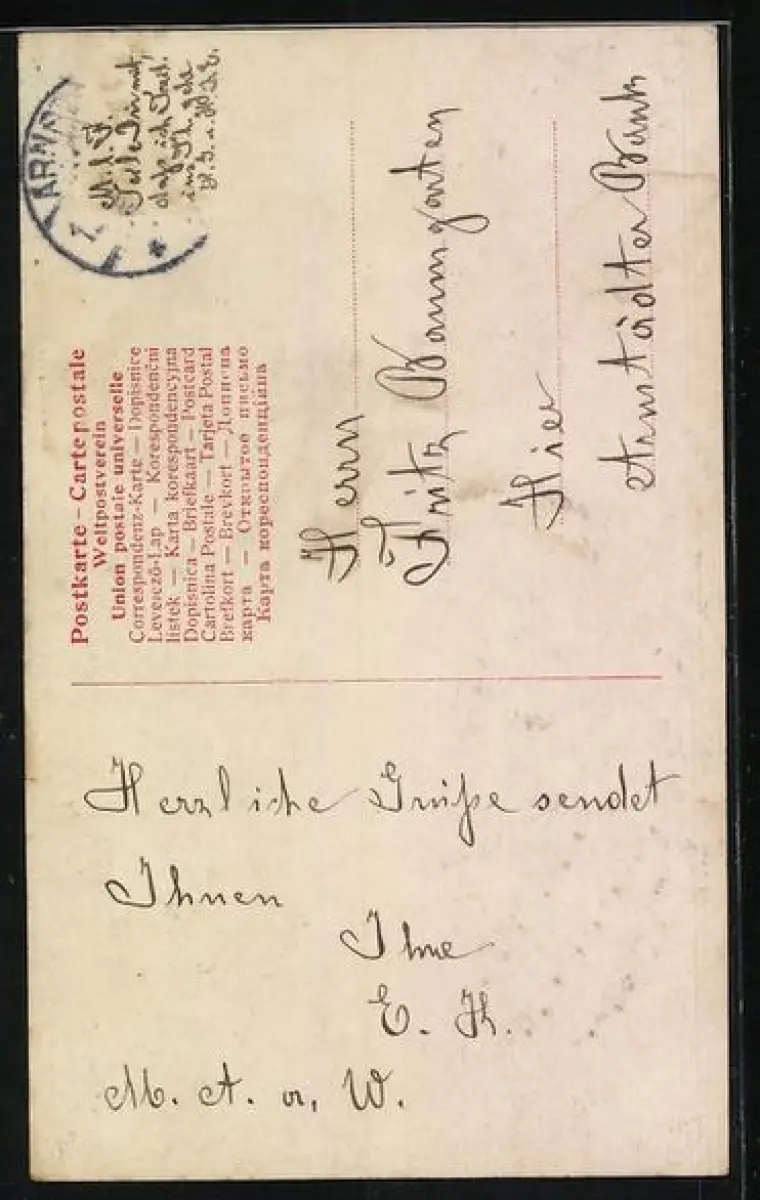 Postkarte – Carte postale
Weltpostverein
Union postale universelle
Correspondenz-Karte — Dopisnice
Levelező-Lap — Korespondenční
lístek — Karta korespondencyjna
Dopisnica — Briefkaart — Postcard
Cartolina Postale — Tarjeta Postal
Brefkort — Brevkort — Дописна
карта — Открытое письмо
Карта кореспонденційна
ARNS
7.
M. l. F.
daß ich
Herrn
Fritz Baumgarten
Hier
Arnstädter Bank
Herzliche Grüße sendet
Ihnen
Ihre
E. H.
M. A. a. W.